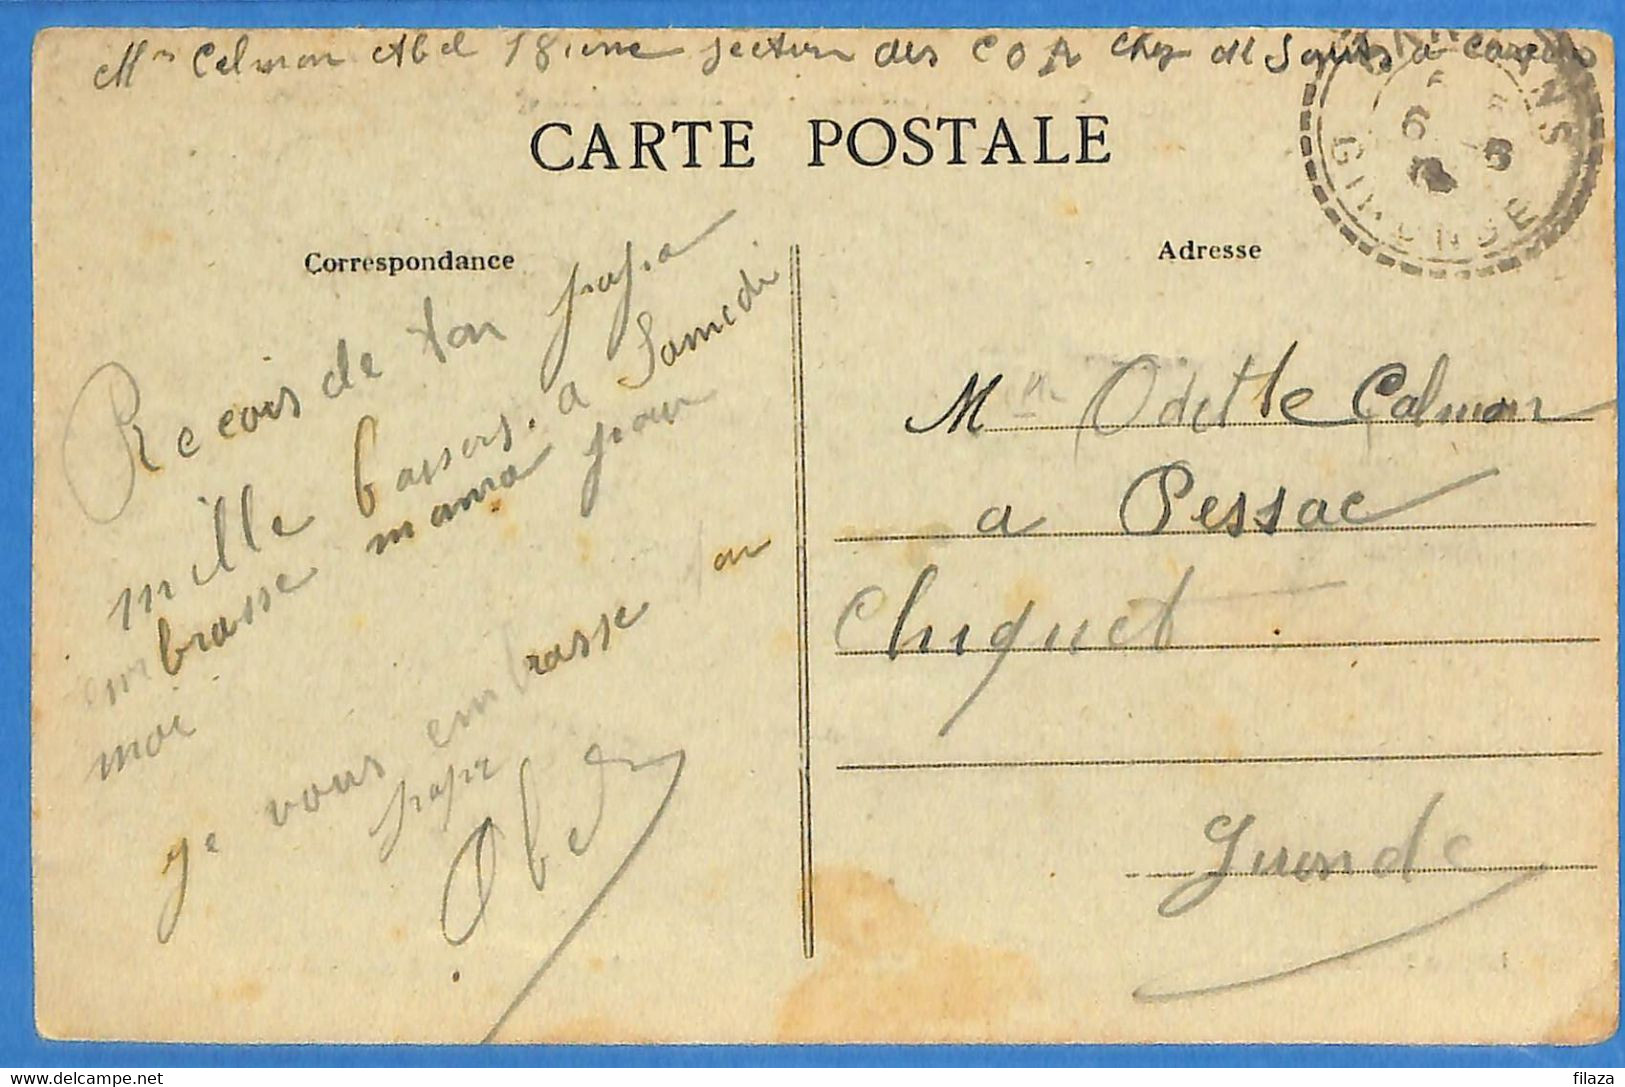 Mr Calmon Abel 18ieme section des C O A chez M
CARTE POSTALE
Correspondance
Adresse
GIRONDE
Recois de ton papa
mille baisers. a Samedi
embrasse mama pour
moi
je vous embrasse ton
papa
Abel
Mlle Odette Calmon
a Pessac
Chiquet
Gironde
filaza
delcampe.net